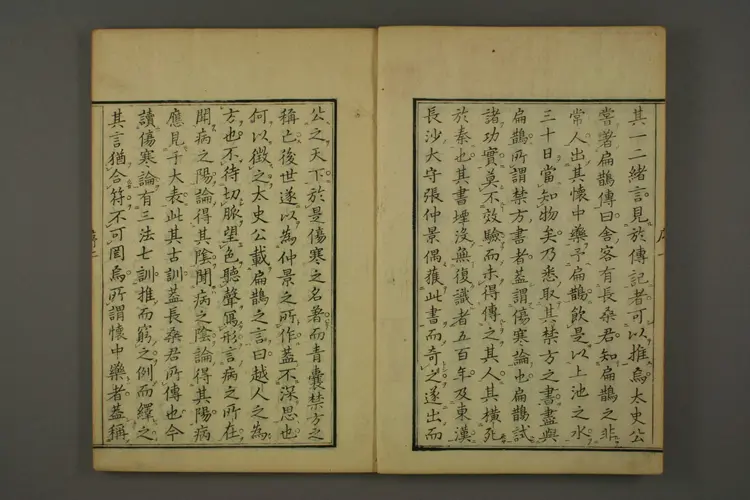 其一二緒言見於傳記者可以推焉太史公
嘗著扁鵲傳曰舍客有長桑君知扁鵲之非
常人出其懷中藥予扁鵲飲是以上池之水
三十日當知物矣乃悉取其禁方之書盡與
扁鵲所謂禁方書者蓋謂傷寒論也扁鵲試
諸功實莫不效驗而未得傳之其人其橫死
於秦也其書堙沒無復識者五百年及東漢
長沙大守張仲景偶獲此書而奇之遂出而
公之天下於是傷寒之名著而青囊禁方之
稱亡後世遂以為仲景之所作蓋不深思也
何以徵之太史公載扁鵲之言曰越人之為
方也不待切脈望色聽聲寫形言病之所在
聞病之陽論得其陰聞病之陰論得其陽病
應見于大表此其古訓蓋長桑君所傳也今
讀傷寒論有三法七訓推而窮之例而繹之
其言猶合符不可罔焉所謂懷中藥者蓋稱
序二